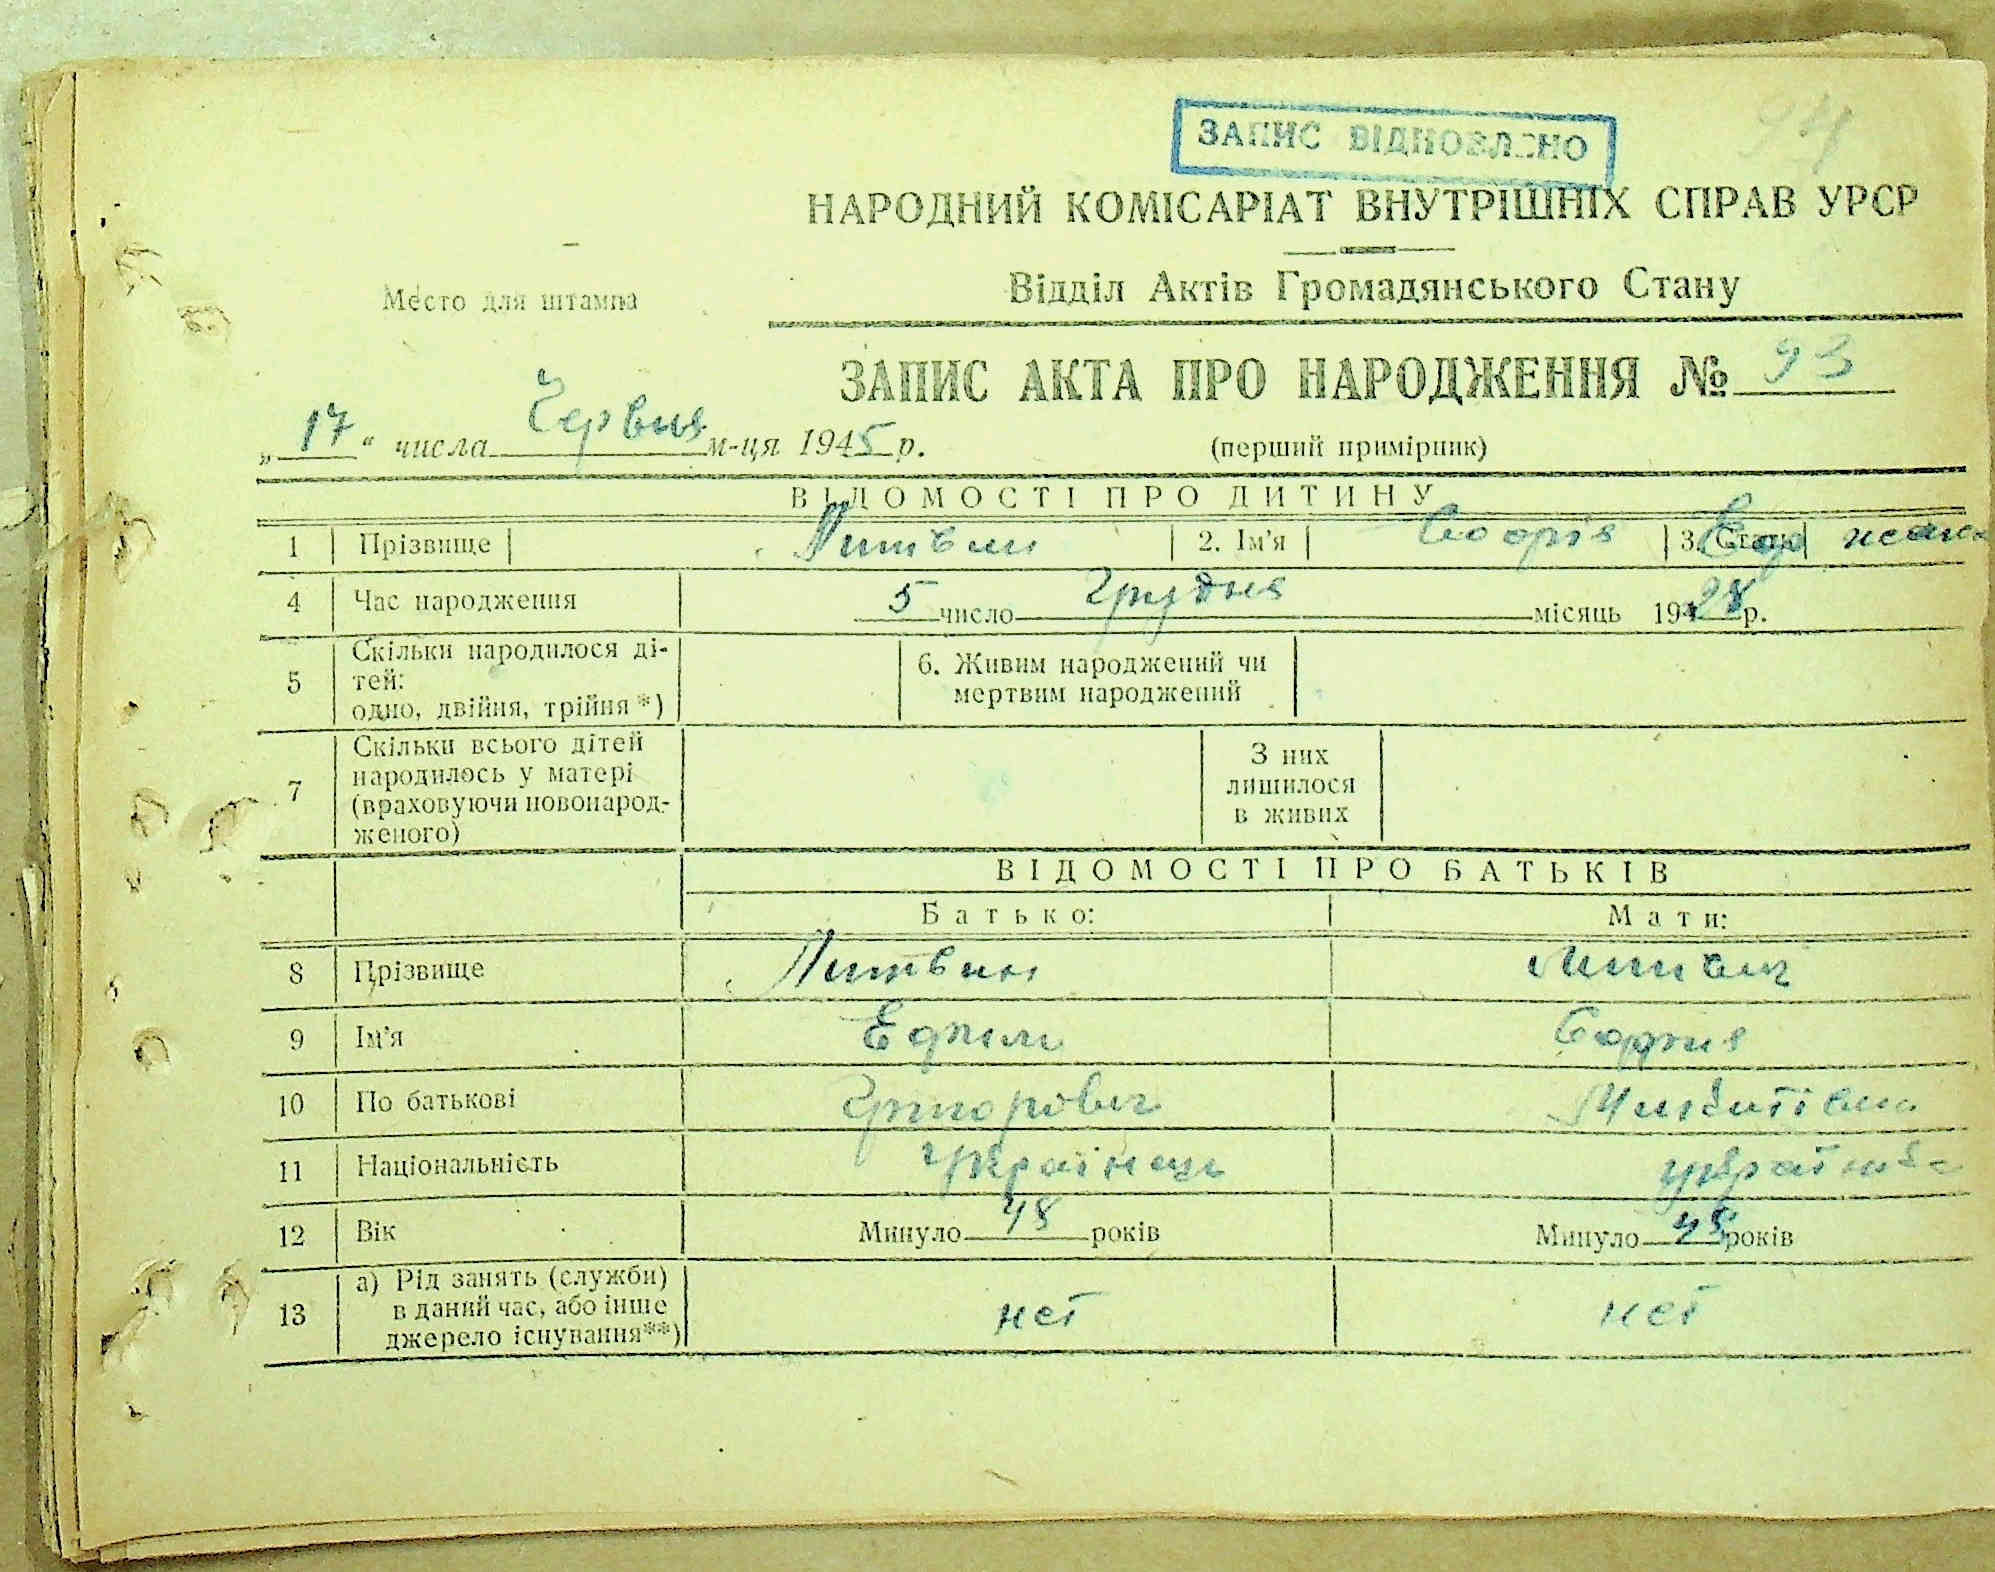 ЗАПИС ВІДНОВЛЕНО
НАРОДНИЙ КОМІСАРІАТ ВНУТРІШНІХ СПРАВ УРСР
Место для штампа
Відділ Актів Громадянського Стану
ЗАПИС АКТА ПРО НАРОДЖЕННЯ № 93
„17“ числа Червня м-ця 1945 р. (перший примірник)
ВІДОМОСТІ ПРО ДИТИНУ
1 Прізвище Литвин 2. Ім'я Софія 3. Стать
4 Час народження 5 число Грудня місяць 1928 р.
5 Скільки народилося ді-
тей:
одно, двійня, трійня *)
6. Живим народжений чи
мертвим народжений
7 Скільки всього дітей
народилось у матері
(враховуючи новонарод-
женого)
З них
лишилося
в живих
ВІДОМОСТІ ПРО БАТЬКІВ
Батько: Мати:
8 Прізвище Литвин Литвин
9 Ім'я Ефим София
10 По батькові Григорович Микитівна
11 Національність Українець українка
12 Вік Минуло 48 років Минуло 48 років
13 а) Рід занять (служби)
в даний час, або інше
джерело існування**)
нет нет